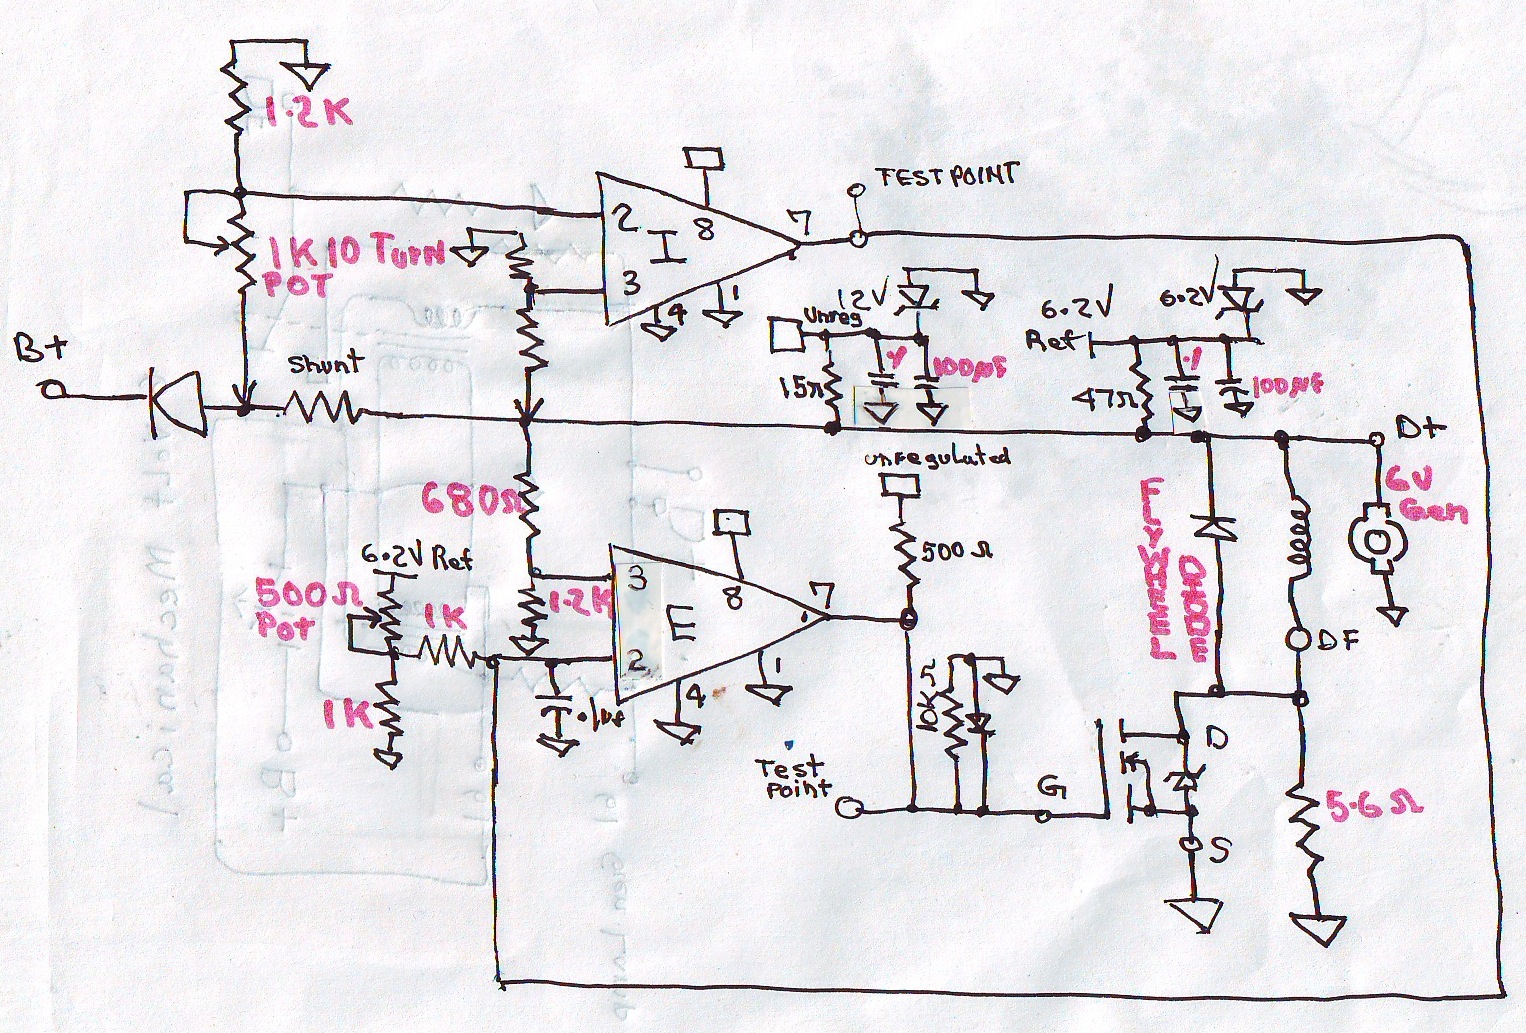 1.2K
TEST POINT
2
8
7
I
1K 10 Turn
POT
3
4
1
12V
Unreg
6.2V
6.2V
Ref
B+
Shunt
100µF
.1
100µF
15Ω
47Ω
D+
unregulated
6V
Gen
680Ω
FLYWHEEL
DIODE
500Ω
6.2V Ref
500Ω
Pot
1K
3
8
7
1.2K
E
2
DF
1
4
1K
.1µf
10K
D
Test
Point
G
5.6Ω
S